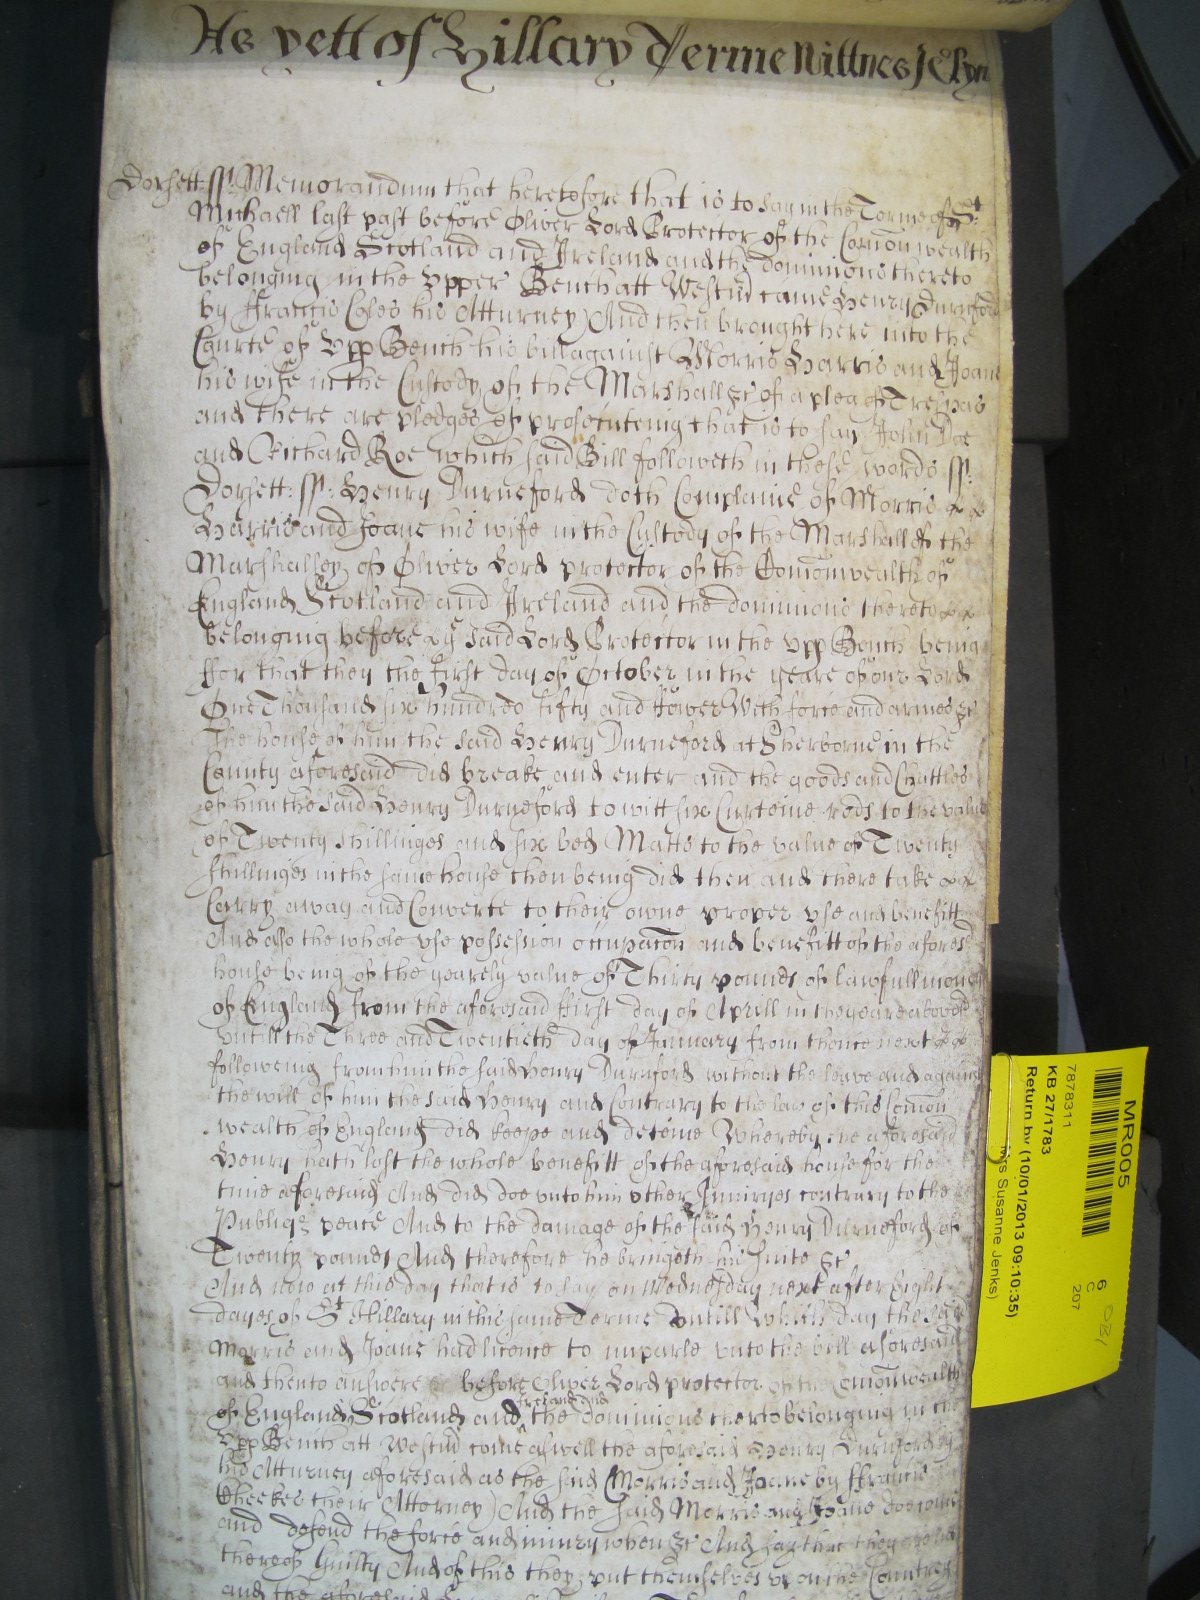 As yett of Hillary Terme Wittnes
Dorsett ss: Memorandum that heretofore that is to say in the Terme of St
Michaell last past before Oliver Lord Protector of the Comonwealth
of England Scotland and Ireland and the dominions thereto
belonging in the Upper Bench att Westmr came Henry Durnford
by Francis Coles his Atturney) And then brought here into the
Courte of Upp Bench his bill against Morris Harris and Joane
his wife in the Custody of the Marshall &c of a plea of Trespas
and there are pledges of prosecuteing that is to say John Doe
and Richard Roe which said Bill followeth in these words ss:
Dorsett: ss: Henry Durneford doth Complaine of Morris
Harris and Joane his wife in the Custody of the Marshall of the
Marshallsey of Oliver Lord protector of the Comonwealth of
England Scotland and Ireland and the dominions thereto
belonging before ye said Lord Protector in the Upp Bench being
ffor that they the first day of October in the yeare of our Lord
One Thousand six hundred fifty and fower With force and armes &c
The house of him the said Henry Durneford at Sherborne in the
County aforesaid did breake and enter and the goods and Chattles
of him the said Henry Durneford to witt six Curteine rods to the value
of Twenty shillinges and six bed Matts to the value of Twenty
shillinges in the same house then being did then and there take
Carry away and Converte to their owne proper use and benefitt
And also the whole use possession occupacon and benefitt of the aforesd
house being of the yearely value of Thirty pounds of lawfull money
of England from the aforesaid first day of Aprill in the yeare abovesd
untill the Three and Twentieth day of January from thence next
followeing from him the said Henry Durnford without the leave and against
the will of him the said Henry and Contrary to the law of this Comon
wealth of England did keepe and deteine Whereby the aforesaid
Henry hath lost the whole benefitt of the aforesaid house for the
time aforesaid And did doe unto him other Iniuryes contrary to the
Publiq peace And to the damage of the said Henry Durneford of
Twenty pounds And therefore he bringeth his suite &c
And now at this day that is to say on Wednesday next after Eight
dayes of St Hillary in this same Terme untill which day the said
Morris and Joane had licence to imparle unto the bill aforesaid
and then to answere before Oliver Lord protector of the Comonwealth
of England Scotland and Ireland and the dominions therto belonging in the
Upp Bench att Westmr come aswell the aforesaid Henry Durnford by
his Atturney aforesaid as the said Morris and Joane by Francis
Cheekes their Attorney) And the said Morris and Joane doe come
and defend the force and iniury when &c And say that they are not
thereof Guilty And of this they put themselves upon the Countrey
and the aforesaid
MR005
6
C
207
7878311
KB 27/1783
Return by (10/01/2013 09:10:35)
Mrs Susanne Jenks)